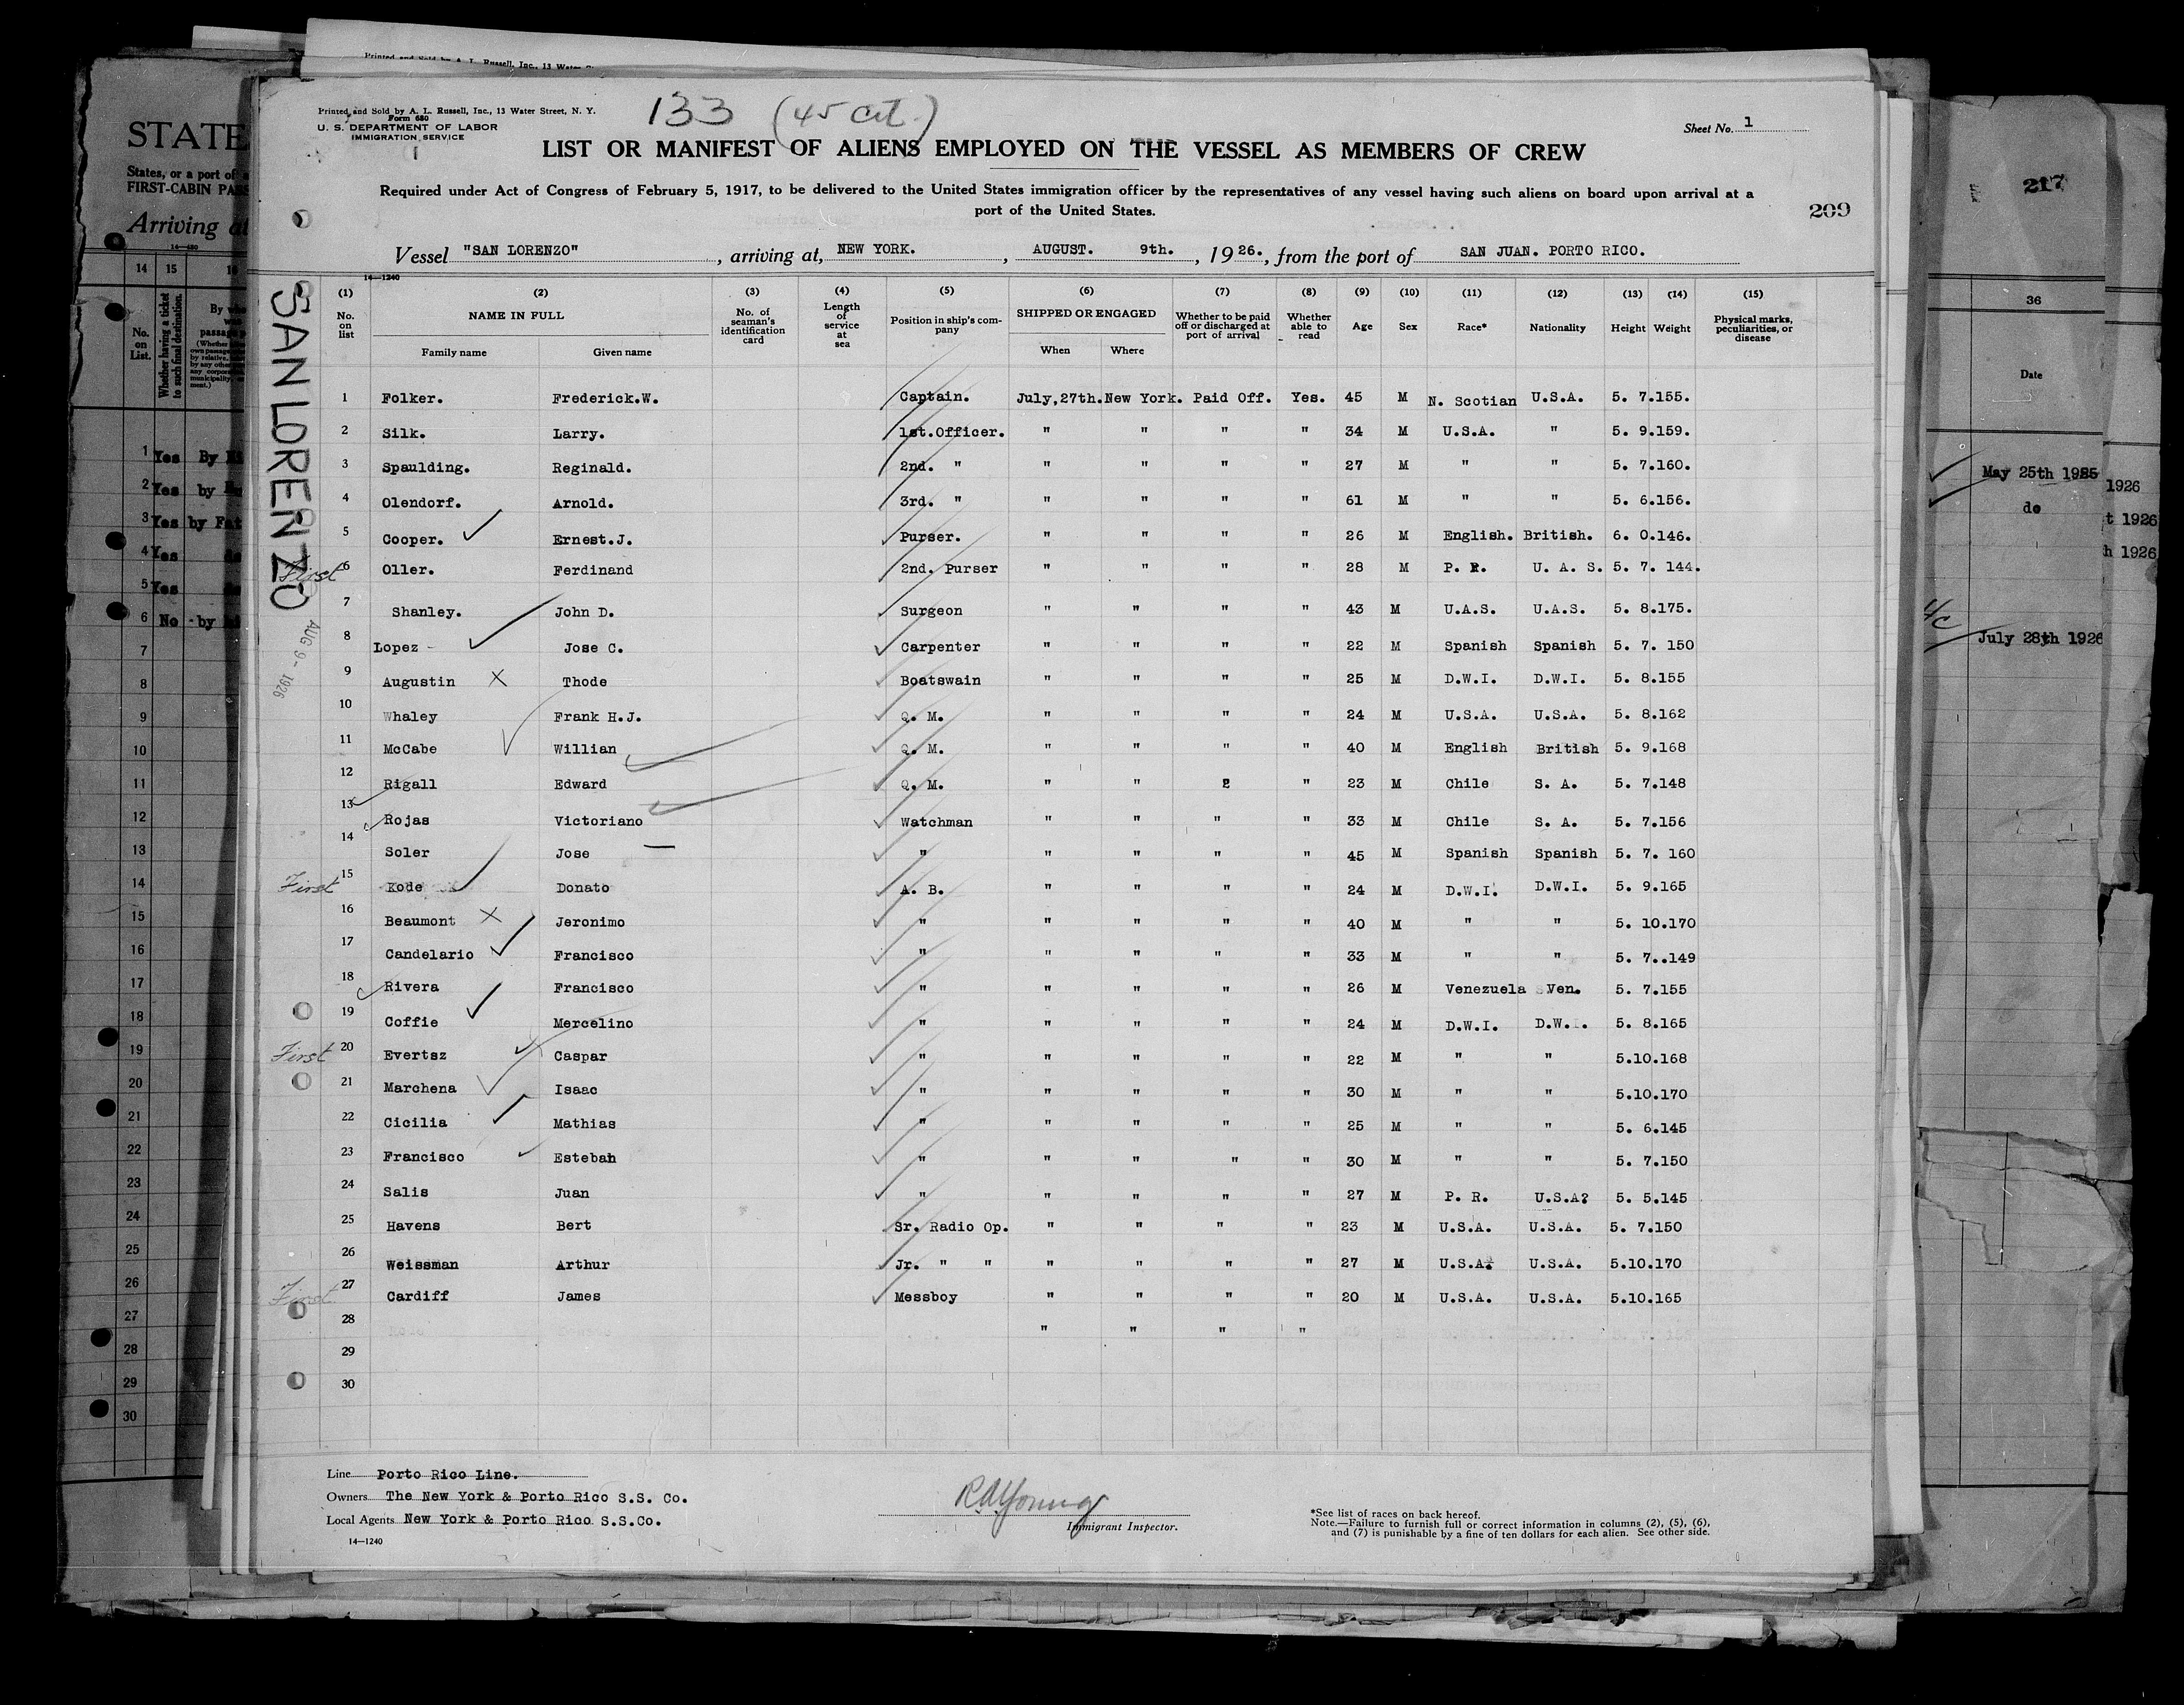 Printed and Sold by A. L. Russell, Inc., 13 Water
STATE
States, or a port of
FIRST-CABIN
Arriving at
14—480
14 15
No. on List.
Whether having a ticket to such final destination.
1 Yes By
2 Yes by
3 Yes by
4 Yes
5 Yes
6 No - by
7
8
9
10
11
12
13
14
15
16
17
18
19
20
21
22
23
24
25
26
27
28
29
30
Printed and Sold by A. L. Russell, Inc., 13 Water Street, N. Y.
Form 680
U. S. DEPARTMENT OF LABOR
IMMIGRATION SERVICE
133 (45 cit.)
Sheet No. 1
LIST OR MANIFEST OF ALIENS EMPLOYED ON THE VESSEL AS MEMBERS OF CREW
Required under Act of Congress of February 5, 1917, to be delivered to the United States immigration officer by the representatives of any vessel having such aliens on board upon arrival at a
port of the United States.
209
Vessel "SAN LORENZO", arriving at, NEW YORK., AUGUST. 9th., 1926., from the port of SAN JUAN. PORTO RICO.
14—1240
SAN LORENZO
AUG 9 - 1926
(1) (2) (3) (4) (5) (6) (7) (8) (9) (10) (11) (12) (13) (14) (15)
No. on list NAME IN FULL Family name Given name No. of seaman's identification card Length of service at sea Position in ship's company SHIPPED OR ENGAGED When Where Whether to be paid off or discharged at port of arrival Whether able to read Age Sex Race* Nationality Height Weight Physical marks, peculiarities, or disease
1 Folker. Frederick.W. Captain. July,27th. New York. Paid Off. Yes. 45 M N. Scotian U.S.A. 5. 7.155.
2 Silk. Larry. 1st.Officer. " " " " 34 M U.S.A. " 5. 9.159.
3 Spaulding. Reginald. 2nd. " " " " " 27 M " " 5. 7.160.
4 Olendorf. Arnold. 3rd. " " " " " 61 M " " 5. 6.156.
5 Cooper. Ernest.J. Purser. " " " " 26 M English. British. 6. 0.146.
First 6 Oller. Ferdinand 2nd. Purser " " " " 28 M P. R. U. A. S. 5. 7. 144.
7 Shanley. John D. Surgeon " " " " 43 M U.A.S. U.A.S. 5. 8.175.
8 Lopez - Jose C. Carpenter " " " " 22 M Spanish Spanish 5. 7. 150
9 Augustin X Thode Boatswain " " " " 25 M D.W.I. D.W.I. 5. 8.155
10 Whaley Frank H.J. Q. M. " " " " 24 M U.S.A. U.S.A. 5. 8.162
11 McCabe Willian Q. M. " " " " 40 M English British 5. 9.168
12 Rigall Edward Q. M. " " 2 " 23 M Chile S. A. 5. 7.148
13 Rojas Victoriano Watchman " " " " 33 M Chile S. A. 5. 7.156
14 Soler Jose " " " " " 45 M Spanish Spanish 5. 7. 160
First 15 Kode Donato A. B. " " " " 24 M D.W.I. D.W.I. 5. 9.165
16 Beaumont X Jeronimo " " " " " 40 M " " 5. 10.170
17 Candelario Francisco " " " " " 33 M " " 5. 7..149
18 Rivera Francisco " " " " " 26 M Venezuela Ven. 5. 7.155
19 Coffie Mercelino " " " " " 24 M D.W.I. D.W.I. 5. 8.165
First 20 Evertsz Caspar " " " " " 22 M " " 5.10.168
21 Marchena Isaac " " " " " 30 M " " 5.10.170
22 Cicilia Mathias " " " " " 25 M " " 5. 6.145
23 Francisco Esteban " " " " " 30 M " " 5. 7.150
24 Salis Juan " " " " " 27 M P. R. U.S.A? 5. 5.145
25 Havens Bert Sr. Radio Op. " " " " 23 M U.S.A. U.S.A. 5. 7.150
26 Weissman Arthur Jr. " " " " " " 27 M U.S.A. U.S.A. 5.10.170
First 27 Cardiff James Messboy " " " " 20 M U.S.A. U.S.A. 5.10.165
28 " " " "
29
30
Line Porto Rico Line.
Owners The New York & Porto Rico S.S. Co.
Local Agents New York & Porto Rico S.S.Co.
14—1240
Immigrant Inspector.
*See list of races on back hereof.
Note.—Failure to furnish full or correct information in columns (2), (5), (6),
and (7) is punishable by a fine of ten dollars for each alien. See other side.
217
36
Date
May 25th 1925
do
July 28th 1926
1926
t 1926
h 1926